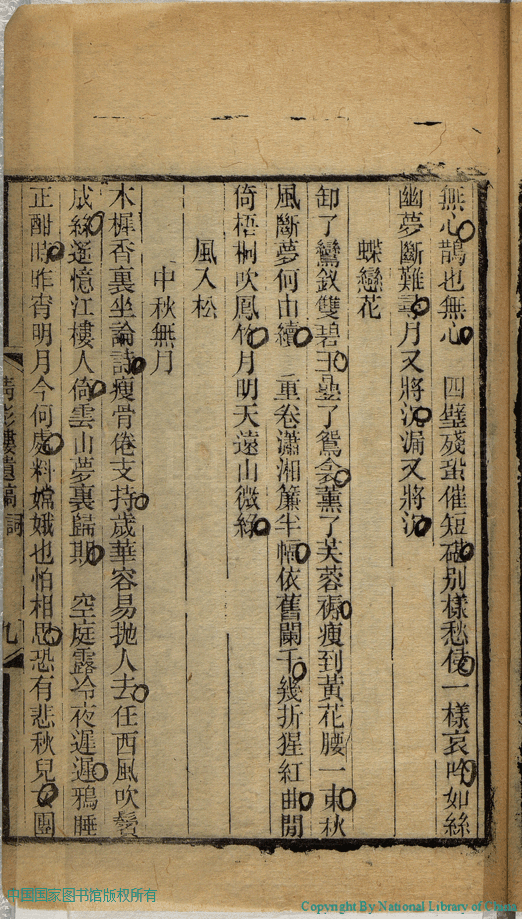 無心鵲也無心　四壁殘蛩催短砌別樣愁侵一樣哀吟如絲
幽夢斷難尋月又將沈漏又將沈
蝶戀花
卸了鸞釵雙碧玉疊了鴛衾薰了芙蓉褥瘦到黃花腰一束秋
風斷夢何由續　重卷瀟湘簾半幅依舊闌干幾折猩紅曲閒
倚梧桐吹鳳竹月明天遠山微綠
風入松
中秋無月
木樨香裏坐論詩瘦骨倦支持歲華容易拋人去任西風吹鬢
成絲遙憶江樓人倚雲山夢裏歸期　空庭露冷夜遲遲鴉睡
正酣時昨宵明月今何處料嫦娥也怕相思恐有悲秋兒女團
影樓遺稿　詞
九
中国国家图书馆版权所有
Copyright By National Library of China